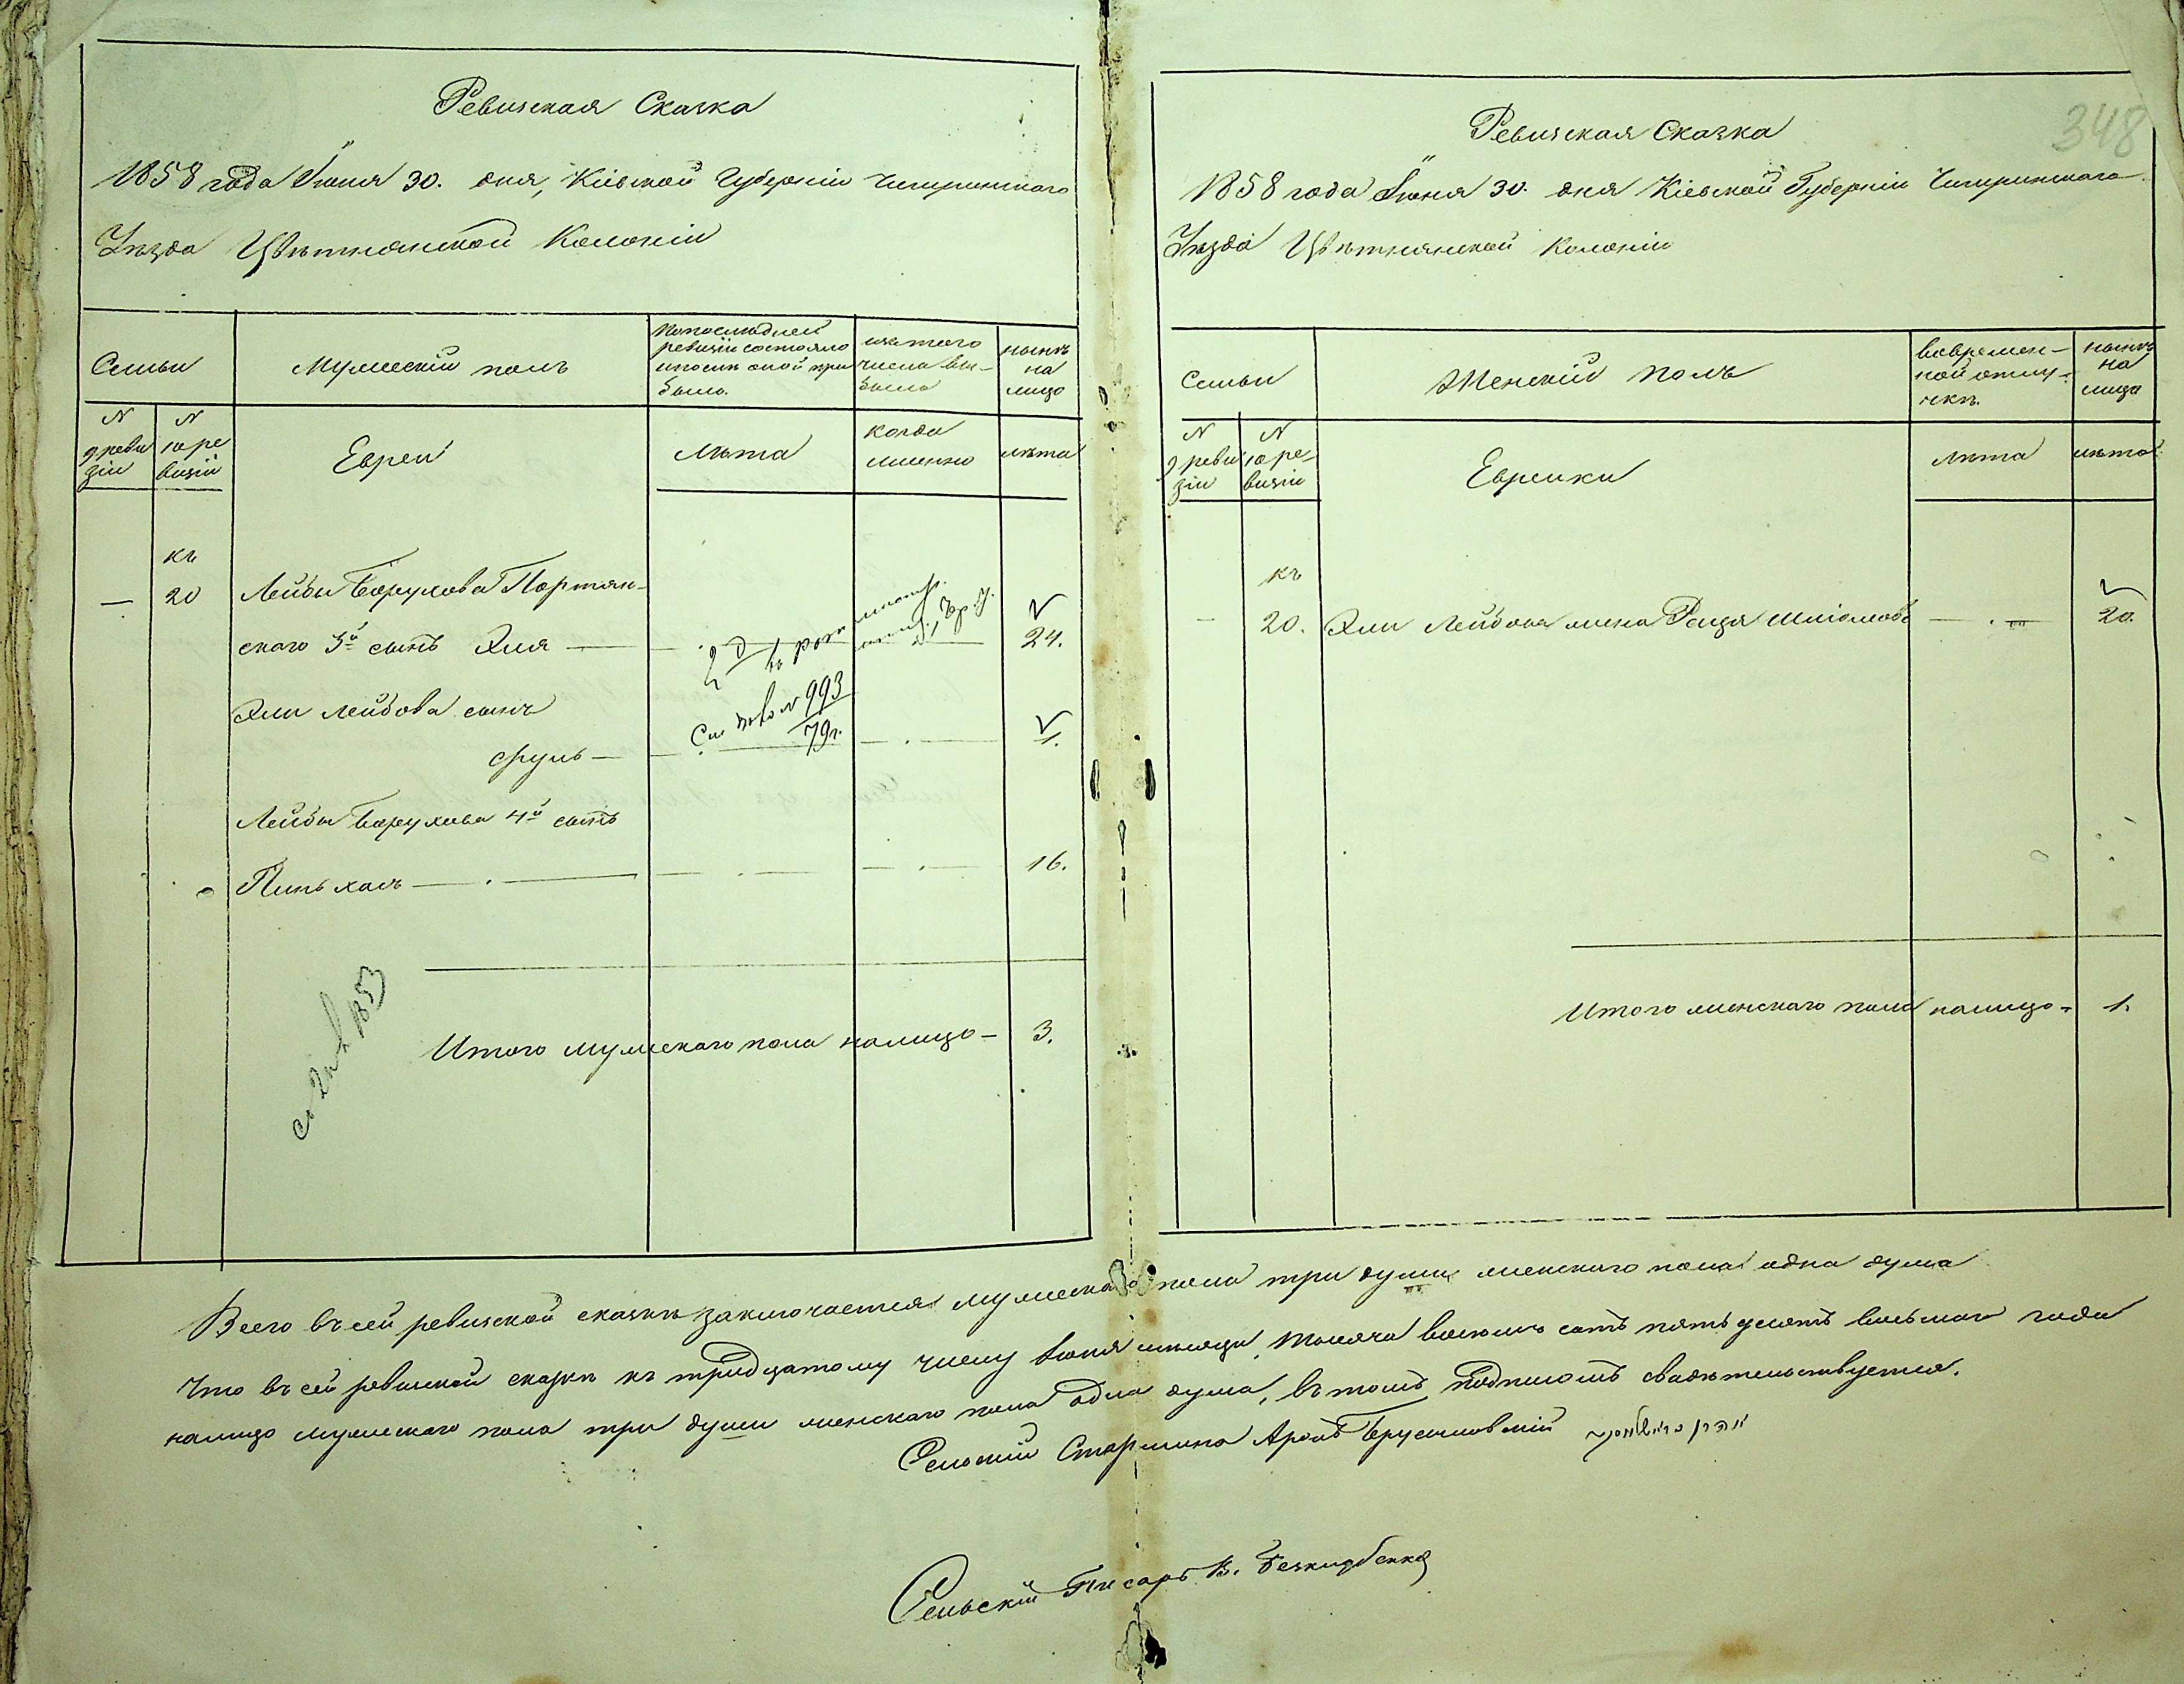 Ревизская Сказка
1858 года Іюня 30. дня, Кіевской Губерніи Чигиринского
Уѣзда Цвѣтнянской Колоніи
Семьи
Мужескій полъ
По последней
ревизіи состояло
и после оной при
было.
изъ того
числа вы-
было
нынѣ
на
лицо
N
9 реви
зіи
N
10 ре
визіи
Евреи
Лѣта
когда
именно
лѣта
къ
— 20 Лейбы Борухова Портян-
ского 3й сынъ Эля — 24.
Эли Лейбова сынъ
Сруль — 1.
См. 993
79г.
Лейбы Борухова 4й сынъ
Пиньхасъ — 16.
1853
Итого мужескаго пола налицо — 3.
348
Ревизская Сказка
1858 года Іюня 30. дня Кіевской Губерніи Чигиринского
Уѣзда Цвѣтнянской Колоніи
Семьи
Женскій полъ
во времен-
ной отлу-
чкѣ.
нынѣ
на
лицо
N
9 реви
зіи
N
10 ре-
визіи
Еврейки
лѣта
лѣта
къ
— 20. Эли Лейбова жена Рейзя Шліомова — 20.
Итого женскаго пола налицо — 1.
Всего въ сей ревизской сказкѣ заключается мужескаго пола три души женскаго пола одна душа
Что въ сей ревизской сказкѣ къ тридцатому числу Іюня мѣсяца, тысяча восемь сотъ пятьдесятъ восьмаго года
налицо мужескаго пола три души женскаго пола одна душа, въ томъ подписомъ свидѣтельствуется.
Сельскій Старшина Аронъ Брусиловскій אהרן
Сельскій Писарь В.